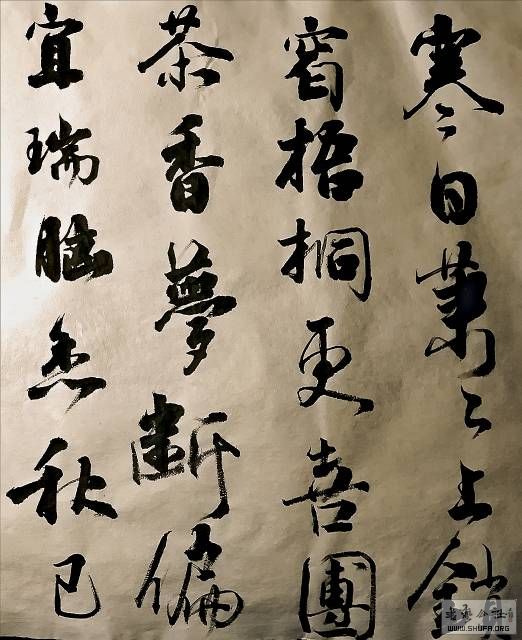 寒日蕭〻上鎖
窗梧桐更喜團
茶香夢斷偏
宜瑞腦香秋已
WWW.SHUFA.ORG